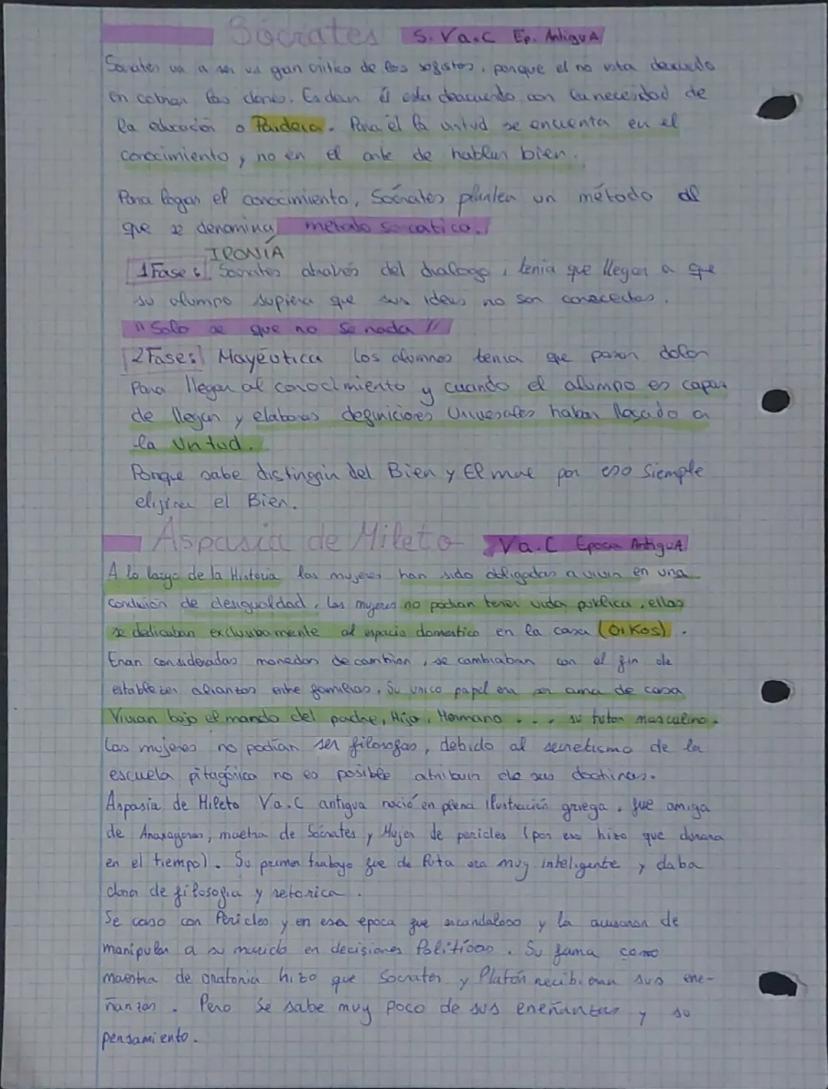 Sócrates S. Va.C Ep. Antigua
Socrates va a ser un gan critico de los sofistas, porque el no esta deacuedo
en cobrar las clases. Es dean él esta deacuerdo con la necesidad de
la educación o Paideia. Para él la virtud se encuenta en el
conocimiento y no en el arte de hablar bien.
Para logar el conocimiento, Sócrates plantea un método
que se denomina metodo socratico.
IRONÍA
1 Fase: Socrates através del dialogo, tenia que llegar a que
su alumno supiera que sus ideas no son conectas.
"Solo se que no se nada"
2 Fase: Mayéutica los alumnos tenia que pasar dolor
Para llegar al conocimiento y cuando el alumno es capaz
de llegar y elaboras definiciones Universales habar llegado a
la Virtud.
Porque sabe distingir del Bien y El mal por eso siempre
elijira el Bien.
Aspasia de Mileto Va.C Epoca Antigua
A lo largo de la Historia las mujeres han sido obligadas a vivir en una
condición de desigualdad, las mujeres no podian tener vida publica, ellas
se dedicaban exclusibamente al espacio domestico en la casa (Oikos).
Eran consideradas monedas de cambian, se cambiaban con el fin de
establecer alianzas entre familias, Su unico papel era ser ama de casa
Vivian bajo el mando del padre, Hijo, Hermano ... su tutor masculino.
Las mujeres no podían ser filosofas, debido al secretismo de la
escuela pitagórica no es posible atribuir de sus doctrinas.
Aspasia de Mileto Va.C antigua nació en plena Ilustración griega, fue amiga
de Anaxagoras, maetra de Sócrates y Mujer de pericles (por eso hizo que durara
en el tiempo). Su primer trabajo fue de Puta era muy inteligente y daba
clase de filosofia y retorica.
Se caso con Pericles y en esa epoca fue escandaloso y la acusaron de
manipular a su marido en decisiones Políticas. Su fama como
maestra de oratoria hizo que Socrates y Platón recibieran sus ene-
ñanzas. Pero se sabe muy poco de sus eneñanzas y su
pensamiento.